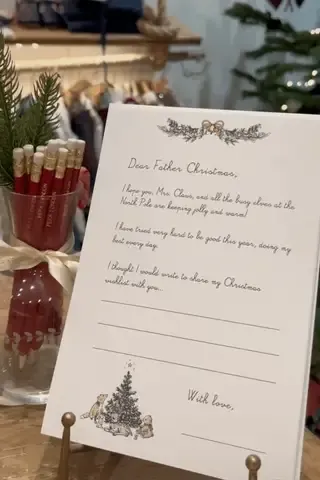 Dear Father Christmas,
I hope you, Mrs. Claus, and all the busy elves at the
North Pole are keeping jolly and warm!
I have tried very hard to be good this year, doing my
best every day.
I thought I would write to share my Christmas
wishlist with you...
With love,